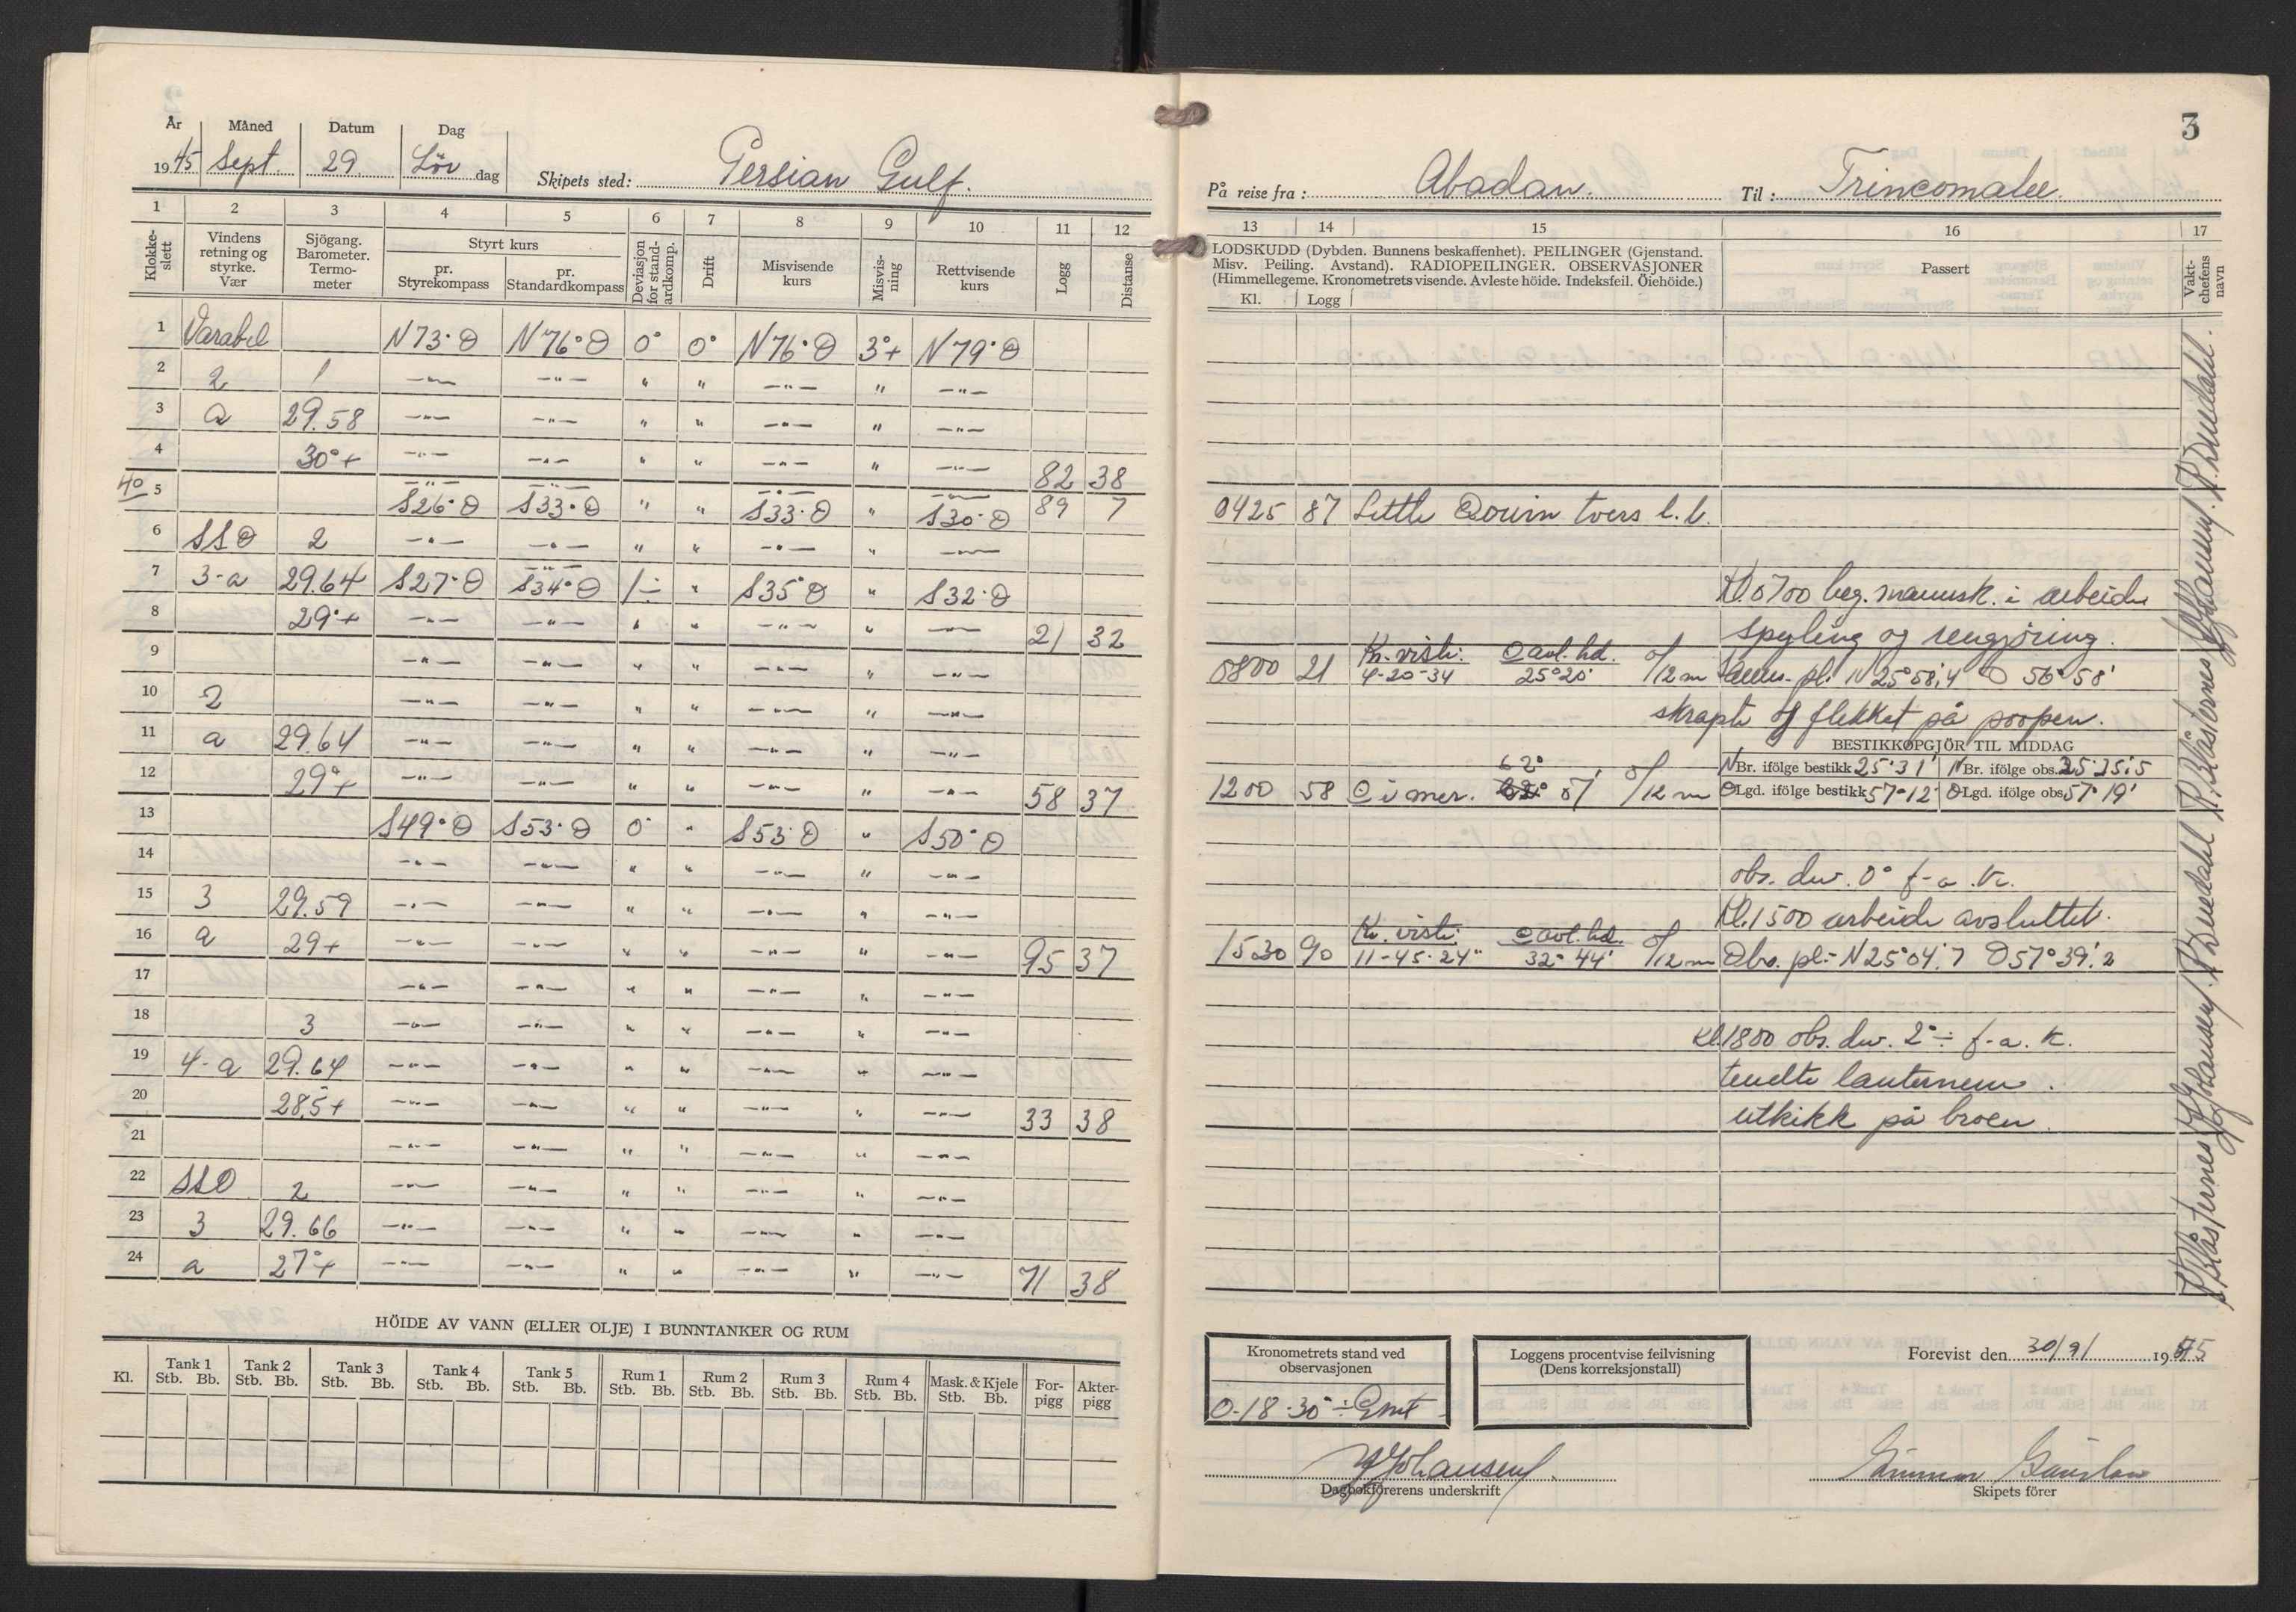 År Måned Datum Dag
1945 Sept. 29. Lör dag Skipets sted: Persian Gulf.
1 2 3 4 5 6 7 8 9 10 11 12
Klokkeslett
Vindens retning og styrke. Vær
Sjögang. Barometer. Termometer
Styrt kurs
pr. Styrekompass
pr. Standardkompass
Deviasjon for standardkomp.
Drift
Misvisende kurs
Misvisning
Rettvisende kurs
Logg
Distanse
1 Varabel N 73° Ø N 76° Ø 0° 0° N 76° Ø 3°+ N 79° Ø
2 2 1 —"— —"— " " —"— " —"—
3 a 29.58 —"— —"— " " —"— " —"—
4 30°+ —"— —"— " " —"— " —"— 82 38
—"— —"— —"— —"—
40 5 S26° Ø S33° Ø " " S33° Ø " S30° Ø 89 7
6 SSØ 2 —"— —"— " " —"— " —"—
—"—
7 3-a 29.64 S27° Ø S34° Ø 1÷ " S35° Ø " S32° Ø
8 29°+ —"— —"— " " —"— " —"— 21 32
9 —"— —"— " " —"— " —"—
10 2 —"— —"— " " —"— " —"—
11 a 29.64 —"— —"— " " —"— " —"—
12 29°+ —"— —"— " " —"— " —"— 58 37
13 S49° Ø S53° Ø 0° " S53° Ø " S50° Ø
14 —"— —"— " " —"— " —"—
15 3 29.59 —"— —"— " " —"— " —"—
16 a 29+ —"— —"— " " —"— " —"— 95 37
17 —"— —"— " " —"— " —"—
18 3 —"— —"— " " —"— " —"—
19 4-a 29.64 —"— —"— " " —"— " —"—
20 28,5+ —"— —"— " " —"— " —"— 33 38
21 —"— —"— " " —"— " —"—
22 SSØ 2 —"— —"— " " —"— " —"—
23 3 29.66 —"— —"— " " —"— " —"—
24 a 27°+ —"— —"— " " —"— " —"— 71 38
HÖIDE AV VANN (ELLER OLJE) I BUNNTANKER OG RUM
Kl. Tank 1 Tank 2 Tank 3 Tank 4 Tank 5 Rum 1 Rum 2 Rum 3 Rum 4 Mask. & Kjele Forpigg Akterpigg
Stb. Bb. Stb. Bb. Stb. Bb. Stb. Bb. Stb. Bb. Stb. Bb. Stb. Bb. Stb. Bb. Stb. Bb. Stb. Bb.
3
På reise fra: Abadan. Til: Trincomalee.
13 14 15 16 17
LODSKUDD (Dybden. Bunnens beskaffenhet). PEILINGER (Gjenstand.
Misv. Peiling. Avstand). RADIOPEILINGER. OBSERVASJONER
(Himmellegeme. Kronometrets visende. Avleste höide. Indeksfeil. Öiehöide.)
Kl. Logg
Passert
Vaktchefens navn
0425 87 Little Quoin tvers b.b.
Kl. 0700 beg. mannsk. i arbeide
spyling og rengjøring.
Kr. viste: ☉ avl. hd.
0800 21 4-20-34 25°20' 0/12 m pl: N 25°58,4 Ø 56°58'
skrapte og flekket på poopen.
BESTIKKOPGJÖR TIL MIDDAG
N Br. ifölge bestikk 25°31' N Br. ifölge obs. 25°25,5
62°
1200 58 ☉ i mer. 51' 0/12 m Ø Lgd. ifölge bestikk 57°12' Ø Lgd. ifölge obs. 57°19'
obs. dev. 0° f-a. k.
Kl. 1500 arbeide avsluttet.
Kr. viste: ☉ avl. hd.
1530 90 11-45-24" 32°44' 0/12 m Obs. pl:- N 25°04,7 Ø 57°39,2
Kl. 1800 obs. dev. 2°÷ f-a. k.
tendte lanternene.
utkikk på broen.
Kronometrets stand ved observasjonen
0-18-30"÷ Gmt
Loggens procentvise feilvisning (Dens korreksjonstall)
Forevist den 30/9/ 1945
Johansen.
Dagbokförerens underskrift
Skipets förer